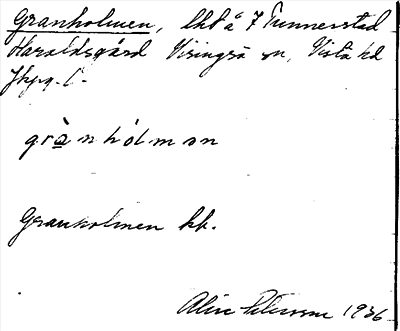 Granholmen, lht å 7 Tunnerstad
Haraldsgård Visingsö sn, Vista hd
Jkpg. l.
grànhólmən
Granholmen kk.
Aline Petersson 1936